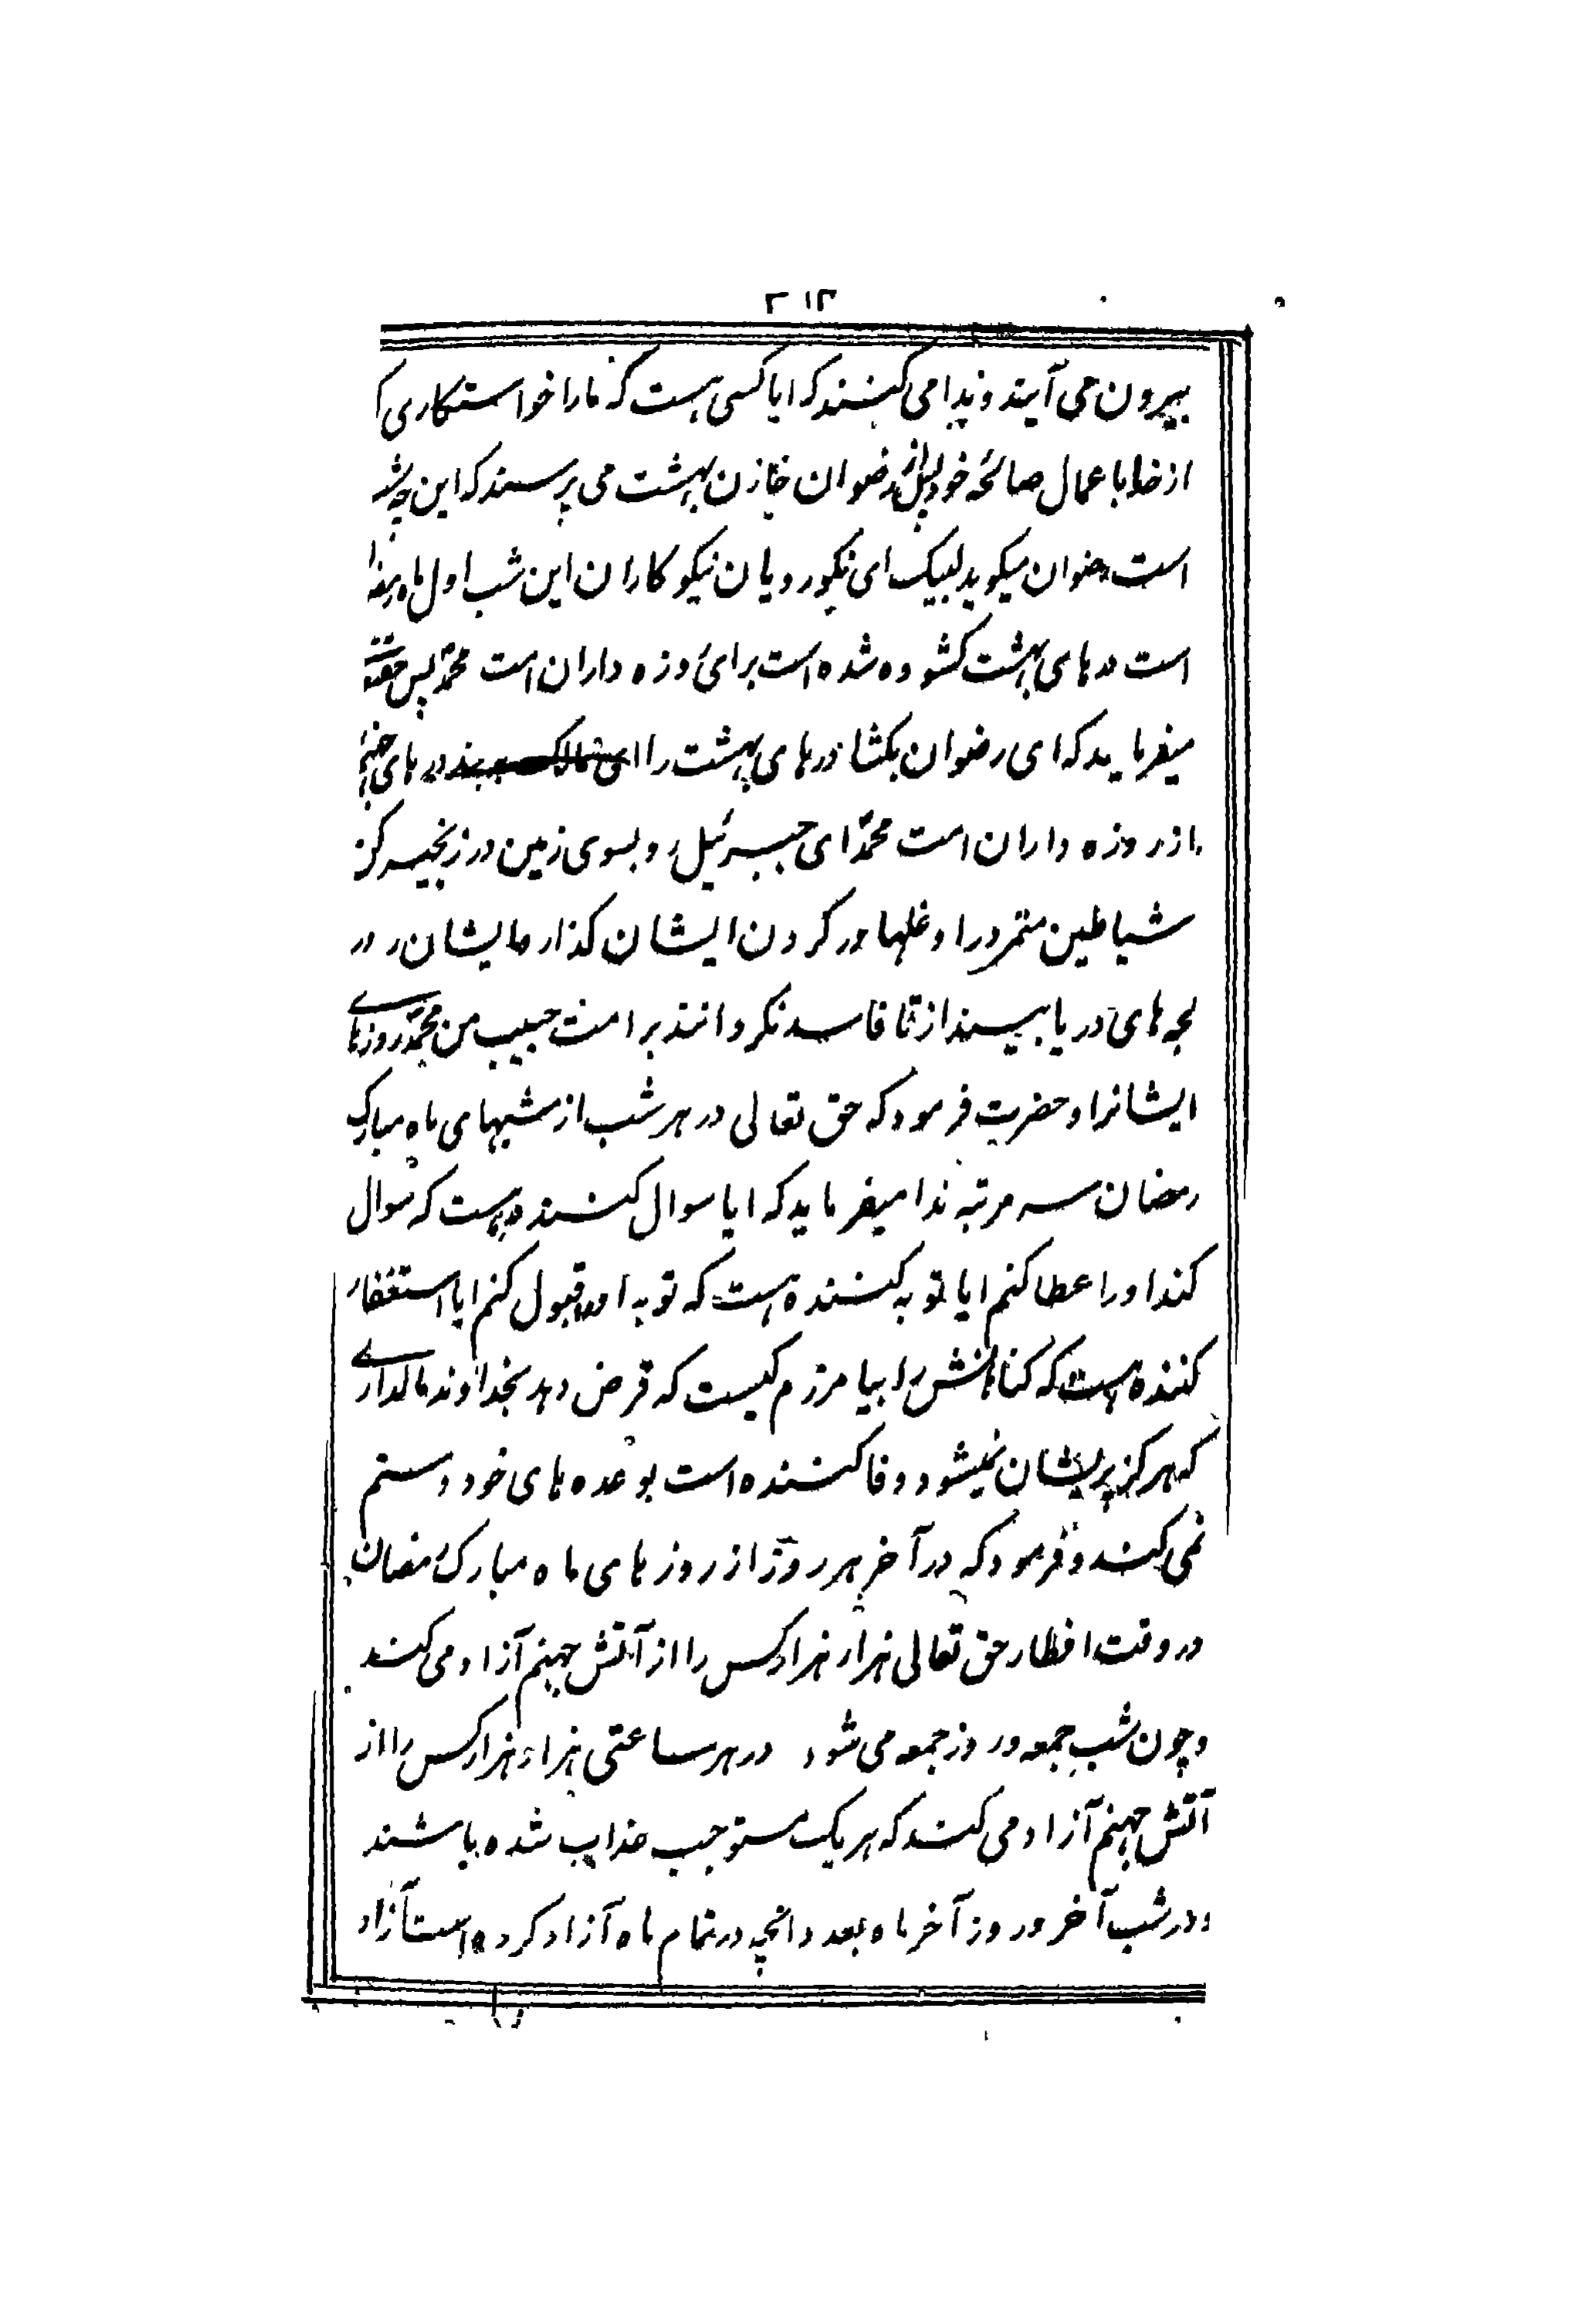 ۲۱۲
بیرون می آیند و ندا می کنند که ایا کسی هست که مارا خواستکاری
از خدا با عمال صالحه خود پس از رضوان خازن بهشت می پرسند که این چه شب
است رضوان میکوید لبیک ای نیکو رویان نیکو کاران این شب اول ماه
است درهای بهشت کشوده شده است برای روزه داران امت محمد پس حقتعالی
میفرماید که ای رضوان بکشا درهای بهشت را ای مالک به بند درهای جهنم
از روزه داران امت محمد ای جبرئیل و بسوی زمین در زنجیر کن
شیاطین متمرد را و غلها در کردن ایشان کذار و ایشان را در
لجه های دریا بینداز تا فاسد نکردانند بر امت حبیب من محمد روزهای
ایشانرا و حضرت فرمود که حق تعالی در هر شب از شبهای ماه مبارک
رمضان سه مرتبه ندا میفرماید که ایا سوال کننده هست که سوال
کند اورا عطا کنم ایا توبه کننده هست که توبه اورا قبول کنم ایا استغفار
کننده هست که کناهانش را بیامرزم کیست که قرض دهد بخداوند مالداری
که هرکز پریشان نمیشود و وفا کننده است بوعده های خود و ستم
نمی کند و فرمود که در آخر هر روز از روزهای ماه مبارک رمضان
در وقت افطار حق تعالی هزار هزار کس را از آتش جهنم آزاد می کند
و چون شب جمعه و روز جمعه می شود در هر ساعتی هزار هزار کس را از
آتش جهنم آزاد می کند که هر یک مستوجب عذاب شده باشند
و در شب آخر و روز آخر ماه بعدد انچه در تمام ماه آزاد کرده است آزاد